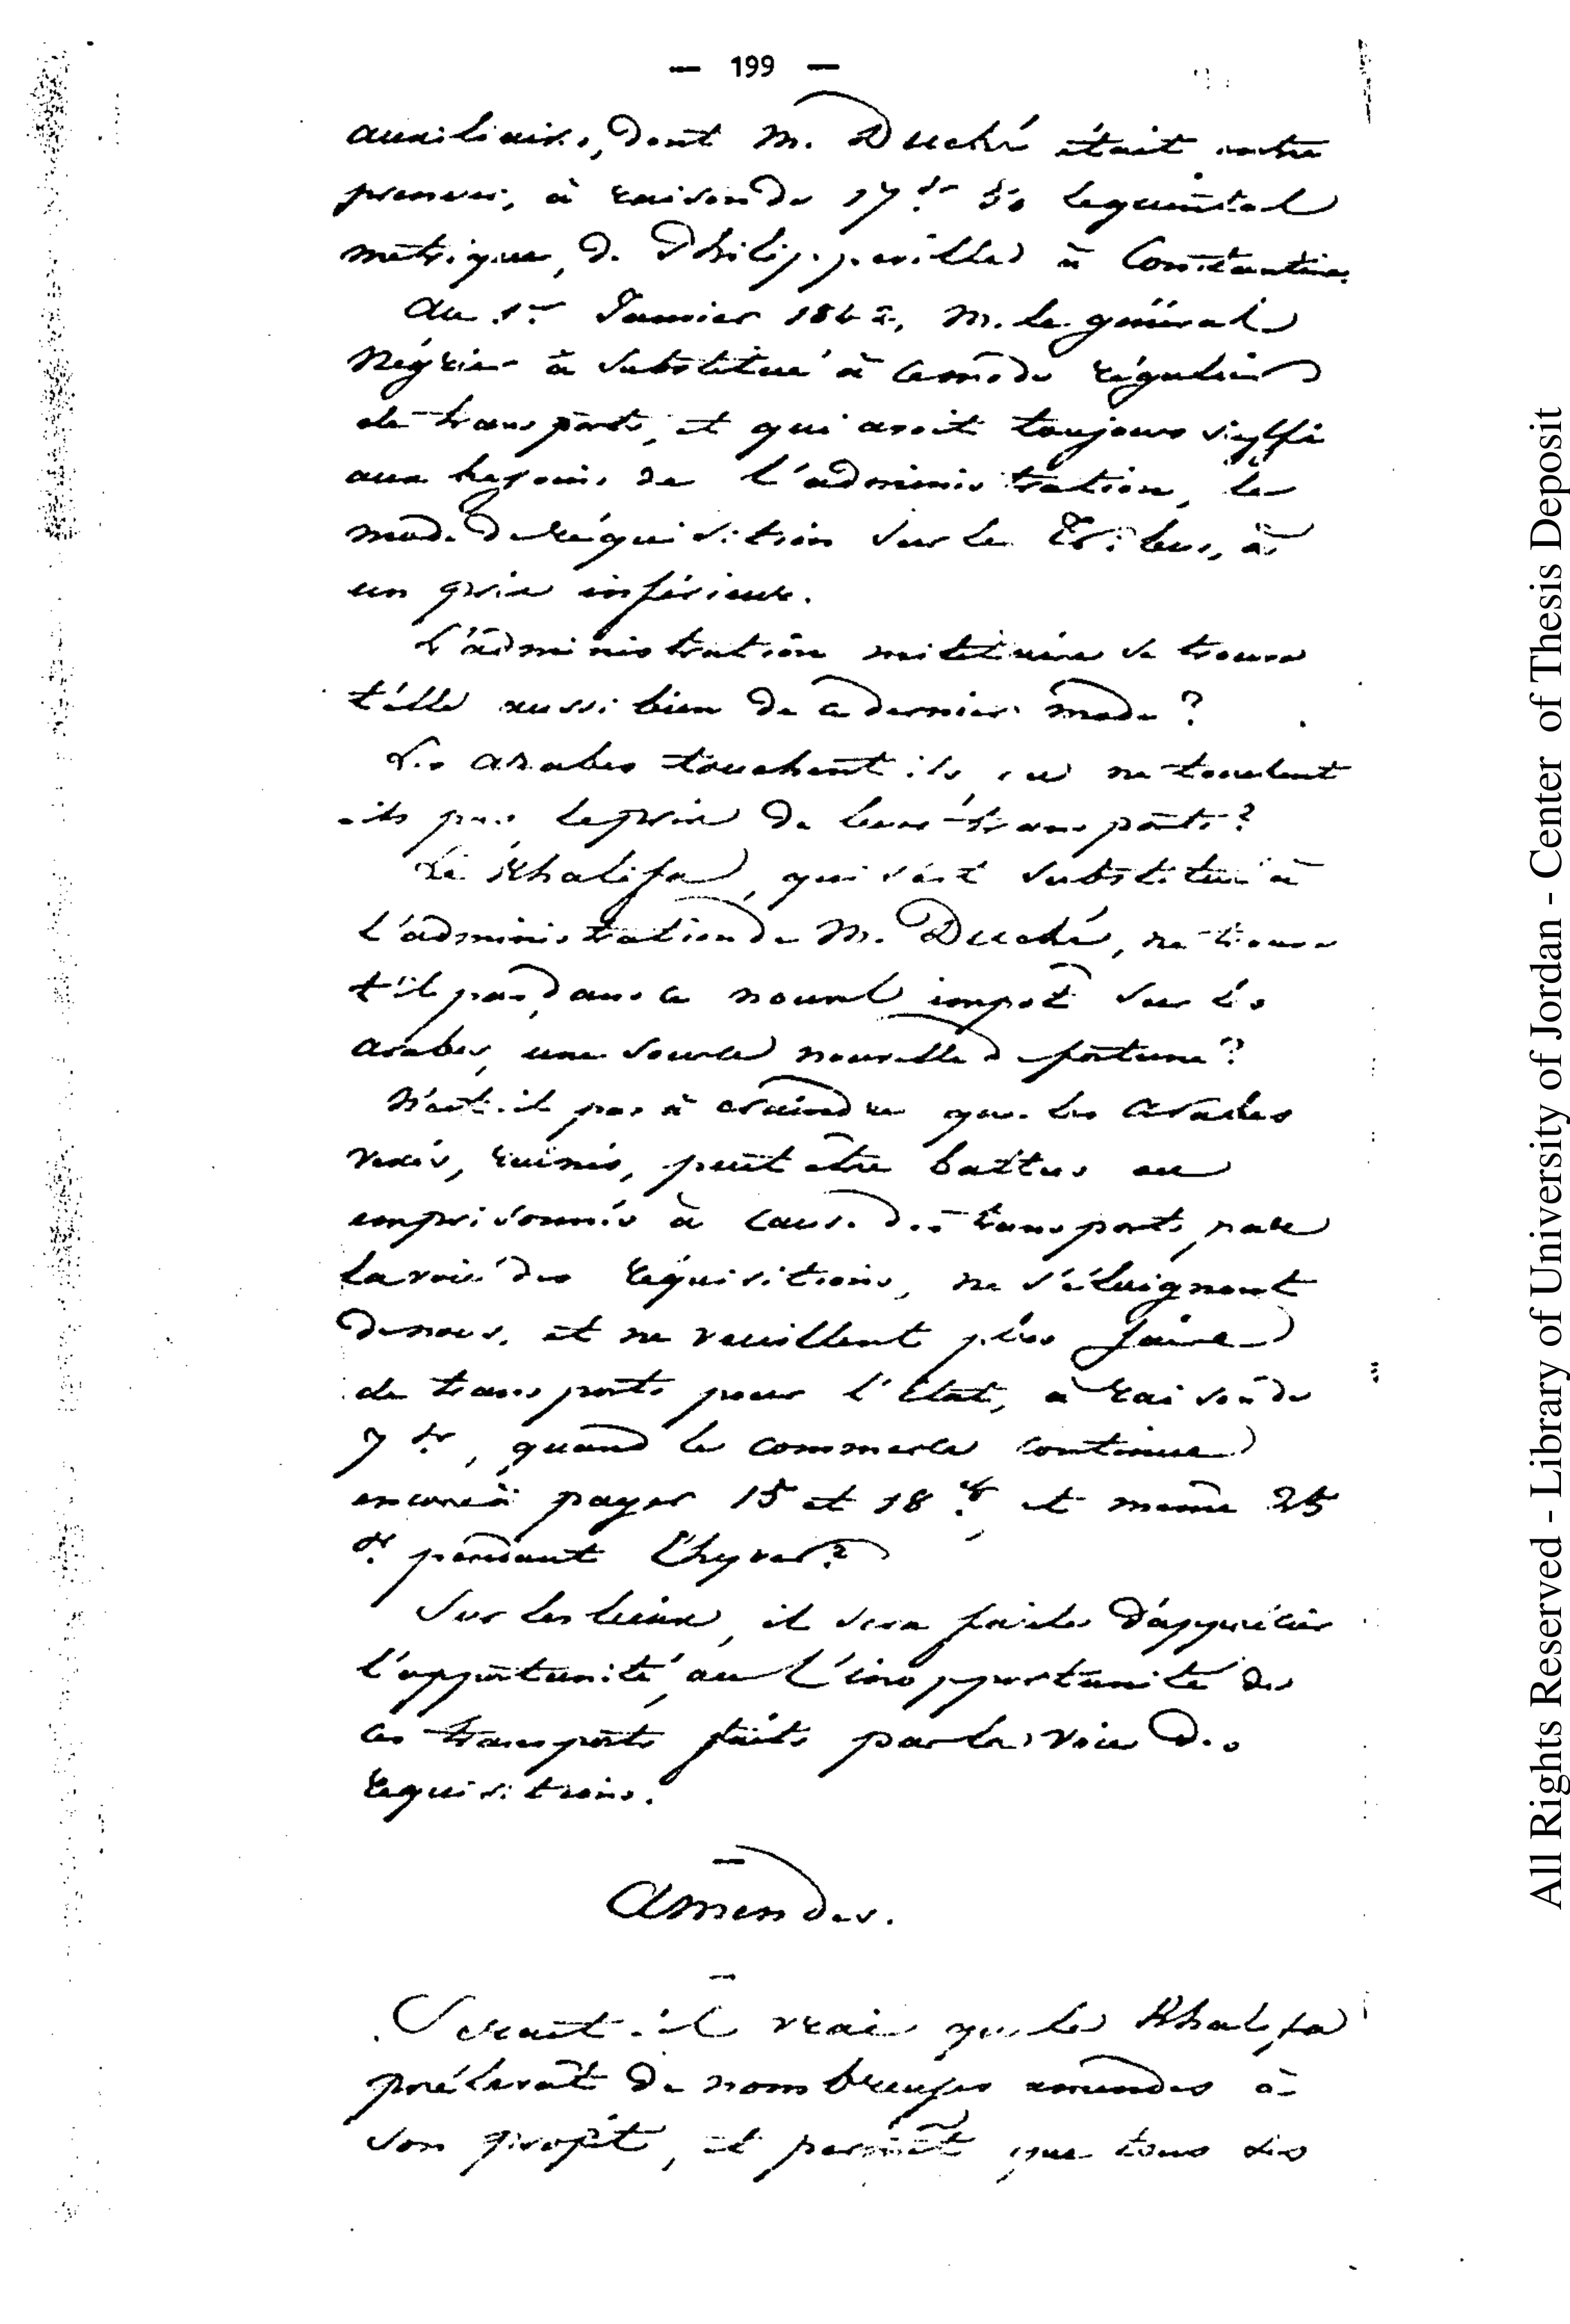 — 199 —
auxiliaires, dont M. Duché était entre
preneur, à raison de 17 fr 50 le quintal
métrique, de Philippeville à Constantine.
Au 1er Janvier 1842, M. le général
Négrier a substitué à ce mode régulier
de transports, et qui avait toujours suffi
aux besoins de l'administration, le
mode de réquisition sur les Tribus, à
un prix inférieur.
L'administration militaire se trouve
t'elle aussi bien de ce dernier mode ?
Les arabes touchent ils, ou ne touchent
-ils pas le prix de leurs transports ?
Le Khalifa, qui s'est substitué à
l'administration de M. Duché, ne trouve
t'il pas, dans ce nouvel impôt sur les
arabes, une source nouvelle de fortune ?
N'est-il pas à craindre que les arabes
vexés, ruinés, peut être battus ou
emprisonnés à cause des transports, par
la voie des réquisitions, ne s'éloignent
de nous, et ne veuillent plus faire
de transports pour l'Etat, à raison de
7 fr, quand le commerce continue
encore à payer 15 et 18 fr et même 25
fr. pendant l'hyver ?
Sur les lieux, il sera facile d'apprécier
l'opportunité, ou l'inopportunité de
ces transports faits par la voie des
réquisitions.
Amendes.
Serait-il vrai que le Khalifa
prélevât de nombreuses amendes à
son profit, et permît que tous les
All Rights Reserved - Library of University of Jordan - Center of Thesis Deposit